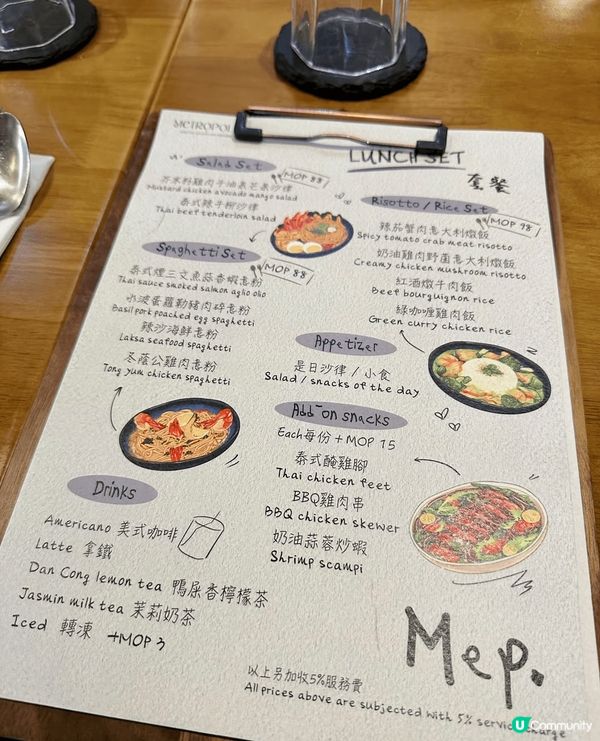 METROPOL
LUNCH SET
套餐
Salad Set
MOP 88
芥末籽雞肉牛油果芒果沙律
Mustard chicken avocado mango salad
泰式辣牛柳沙律
Thai beef tenderloin salad
Spaghetti Set
MOP 88
泰式煙三文魚蒜香蝦意粉
Thai sauce smoked salmon aglio olio
水波蛋羅勒豬肉碎意粉
Basil pork poached egg spaghetti
辣沙海鮮意粉
Laksa seafood spaghetti
冬蔭公雞肉意粉
Tong yum chicken spaghetti
Risotto / Rice Set
MOP 98
辣茄蟹肉意大利燉飯
Spicy tomato crab meat risotto
奶油雞肉野菌意大利燉飯
Creamy chicken mushroom risotto
紅酒燉牛肉飯
Beef bourguignon rice
綠咖喱雞肉飯
Green curry chicken rice
Appetizer
是日沙律 / 小食
Salad / snacks of the day
Add-on snacks
Each每份 +MOP 15
泰式醃雞腳
Thai chicken feet
BBQ雞肉串
BBQ chicken skewer
奶油蒜蓉炒蝦
Shrimp scampi
Drinks
Americano 美式咖啡
Latte 拿鐵
Dan Cong lemon tea 鴨屎香檸檬茶
Jasmin milk tea 茉莉奶茶
Iced 轉凍 +MOP 3
Mep.
以上另加收5%服務費
All prices above are subjected with 5% service charge
U Community